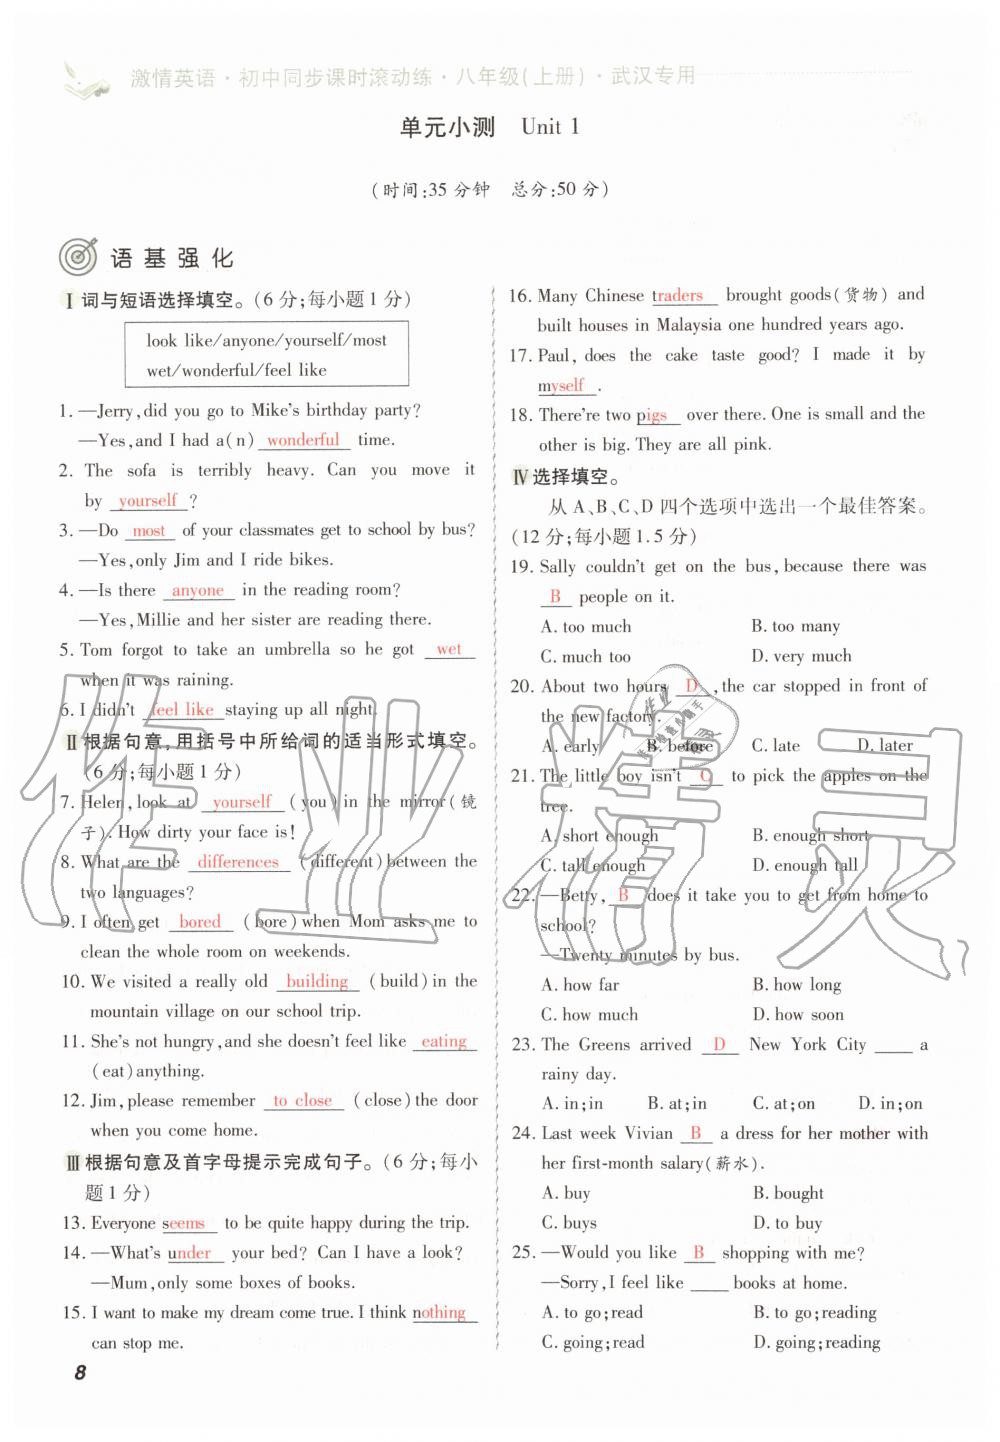 激情英语·初中同步课时滚动练·八年级(上册)·武汉专用
单元小测 Unit 1
(时间:35分钟 总分:50分)
语基强化
Ⅰ 词与短语选择填空。(6分;每小题1分)
look like/anyone/yourself/most
wet/wonderful/feel like
1. —Jerry,did you go to Mike's birthday party?
—Yes,and I had a(n) wonderful time.
2. The sofa is terribly heavy. Can you move it
by yourself ?
3. —Do most of your classmates get to school by bus?
—Yes,only Jim and I ride bikes.
4. —Is there anyone in the reading room?
—Yes,Millie and her sister are reading there.
5. Tom forgot to take an umbrella so he got wet
when it was raining.
6. I didn't feel like staying up all night.
Ⅱ 根据句意,用括号中所给词的适当形式填空。
(6分;每小题1分)
7. Helen,look at yourself (you)in the mirror(镜
子). How dirty your face is!
8. What are the differences (different)between the
two languages?
9. I often get bored (bore)when Mom asks me to
clean the whole room on weekends.
10. We visited a really old building (build)in the
mountain village on our school trip.
11. She's not hungry,and she doesn't feel like eating
(eat)anything.
12. Jim,please remember to close (close)the door
when you come home.
Ⅲ 根据句意及首字母提示完成句子。(6分;每小
题1分)
13. Everyone seems to be quite happy during the trip.
14. —What's under your bed? Can I have a look?
—Mum,only some boxes of books.
15. I want to make my dream come true. I think nothing
can stop me.
8
16. Many Chinese traders brought goods(货物) and
built houses in Malaysia one hundred years ago.
17. Paul, does the cake taste good? I made it by
myself .
18. There're two pigs over there. One is small and the
other is big. They are all pink.
Ⅳ 选择填空。
从A、B、C、D四个选项中选出一个最佳答案。
(12分;每小题1.5分)
19. Sally couldn't get on the bus,because there was
B people on it.
A. too much B. too many
C. much too D. very much
20. About two hours D ,the car stopped in front of
the new factory.
A. early B. before C. late D. later
21. The little boy isn't C to pick the apples on the
tree.
A. short enough B. enough short
C. tall enough D. enough tall
22. —Betty, B does it take you to get from home to
school?
—Twenty minutes by bus.
A. how far B. how long
C. how much D. how soon
23. The Greens arrived D New York City ____ a
rainy day.
A. in;in B. at;in C. at;on D. in;on
24. Last week Vivian B a dress for her mother with
her first-month salary(薪水).
A. buy B. bought
C. buys D. to buy
25. —Would you like B shopping with me?
—Sorry,I feel like ____ books at home.
A. to go;read B. to go;reading
C. going;read D. going;reading
作业精灵